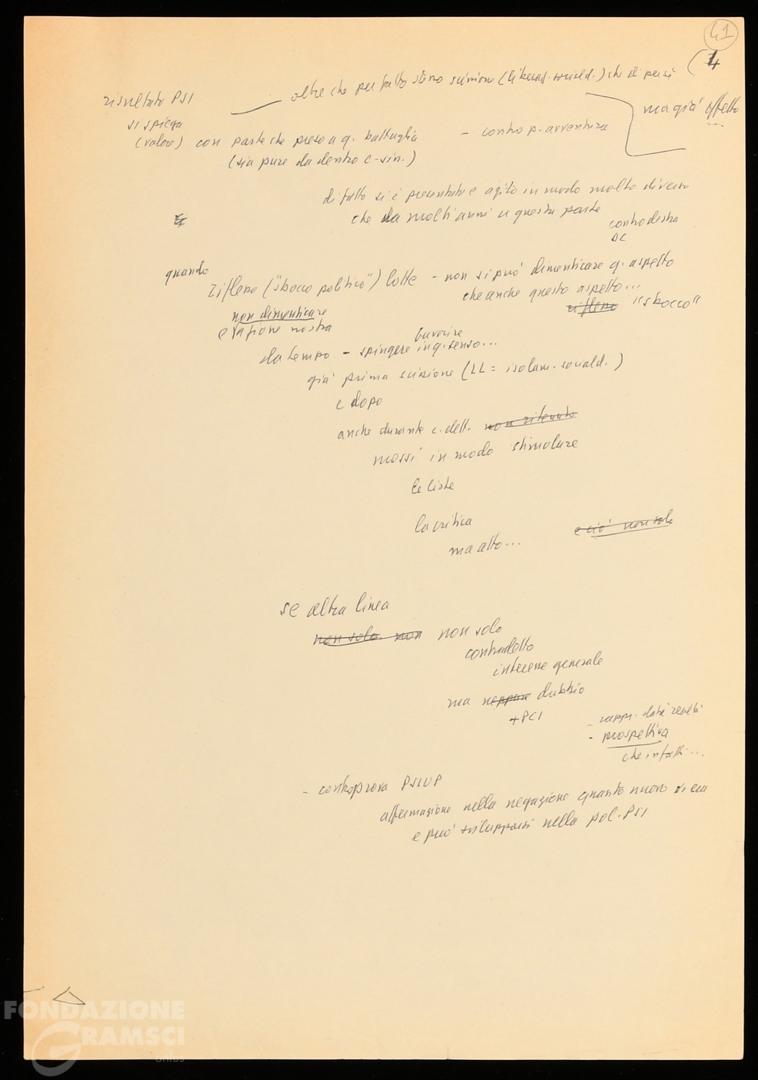 41
4
risultato PSI
oltre che per fatto stesso scissione (liberaz. sociald.) che di per sé
ma già effetto
si spiega
(valore) con parte che preso a q. battaglia - contro p. avventura
(sia pure da dentro c-sin.)
di fatto si è presentato e agito in modo molto diverso
che da molti anni a questa parte
contro destra
DC
quando
riflesso ("sbocco politico") lotte - non si può dimenticare q. aspetto
che anche questo aspetto...
riflesso "sbocco"
non dimenticare
e nostra
favorire
da tempo - spingere in q. senso...
già prima scissione (LL = isolam. sociald.)
e dopo
anche durante c. elett. non
mossi in modo stimolare
le liste
la critica
ma altro...
e ciò non solo
se altra linea
non solo non non solo
contraddetto
interesse generale
ma neppure dubbio
+ PCI
- rapp.
- prospettiva
che infatti...
- controprova PSIUP
affermazione nella negazione quanto nuovo
e può svilupparsi nella pol. PSI
FONDAZIONE
GRAMSCI
onlus